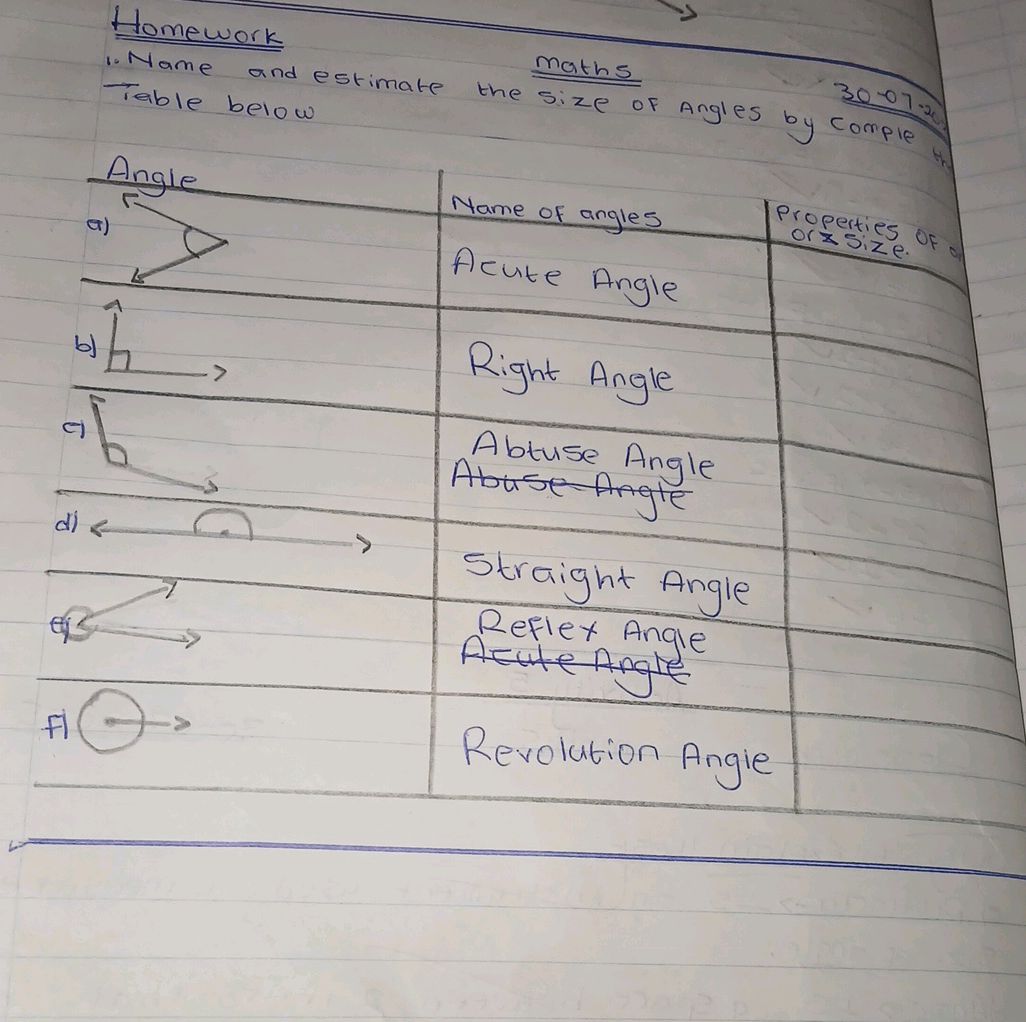 Homework
maths
30-07-20
1. Name and estimate the size of Angles by Comple the
Table below
Angle
Name of angles
Properties of
or x size.
a)
Acute Angle
b)
Right Angle
c)
Abtuse Angle
Abuse Angle
d)
Straight Angle
e)
Reflex Angle
Acute Angle
f)
Revolution Angle